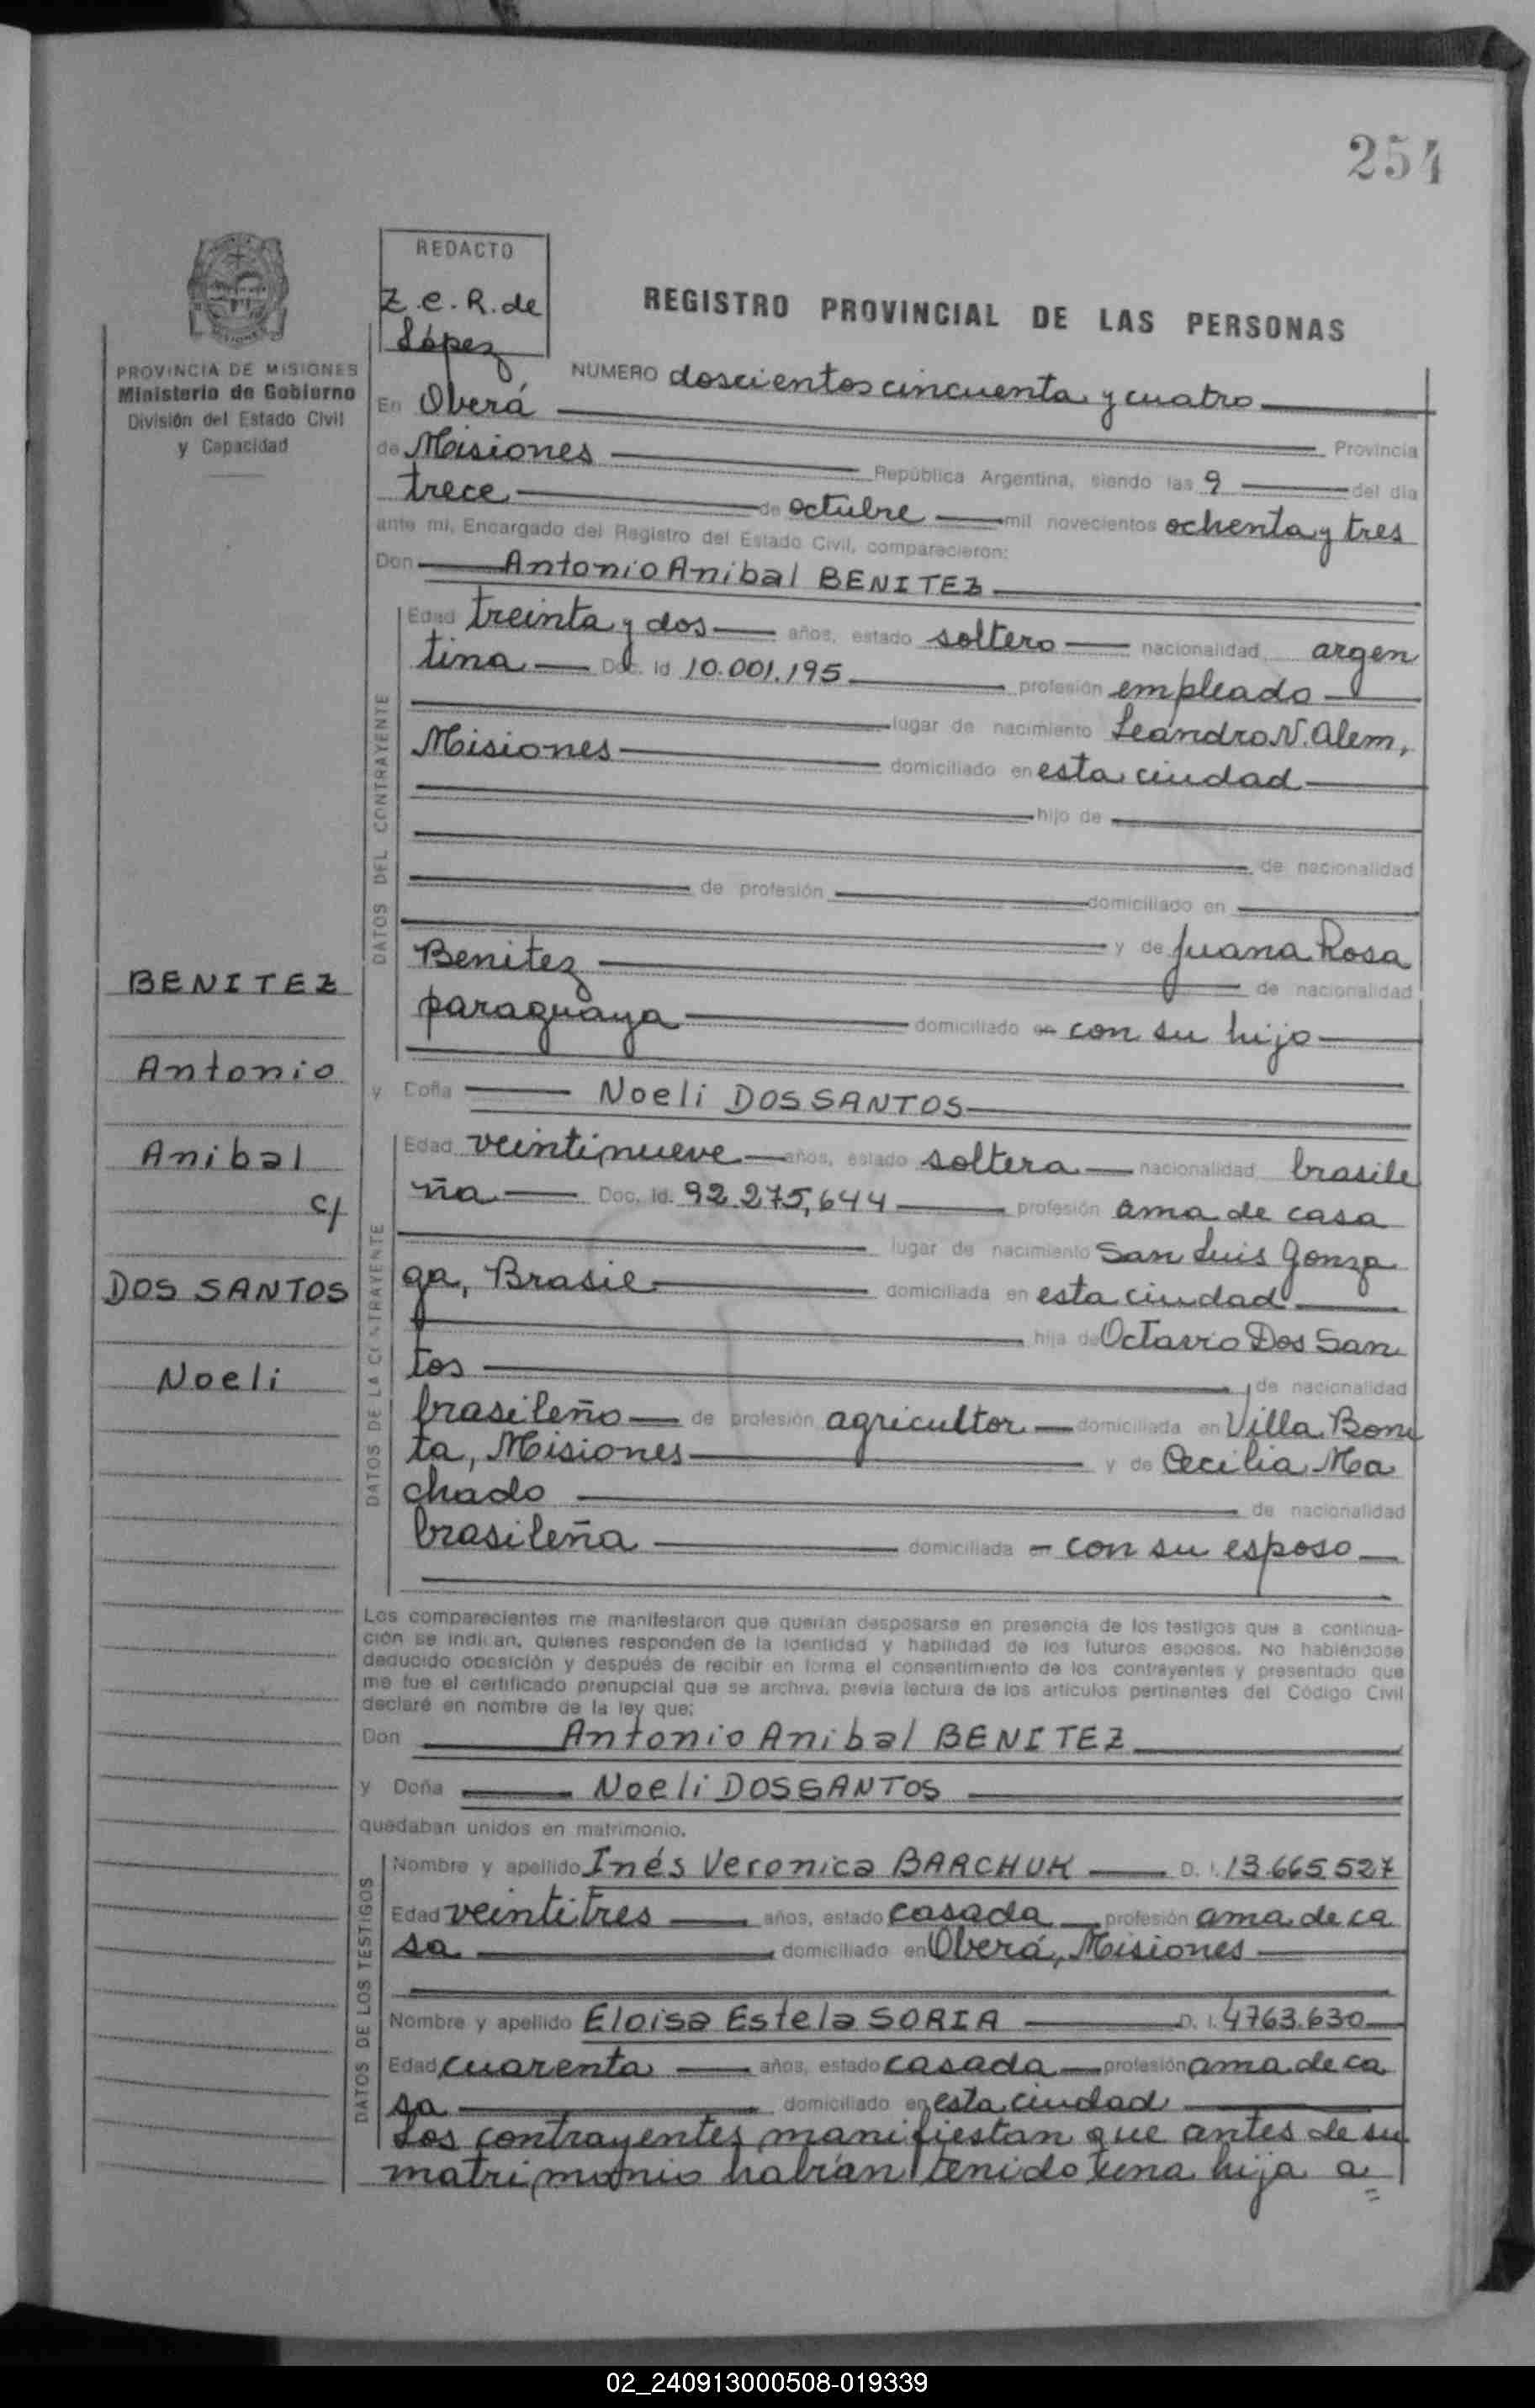 254
REDACTO
Z.e.R.de
López
REGISTRO PROVINCIAL DE LAS PERSONAS
PROVINCIA DE MISIONES
Ministerio de Gobierno
División del Estado Civil
y Capacidad
NUMERO doscientos cincuenta y cuatro
En Oberá
Provincia
de Misiones República Argentina, siendo las 9 del día
trece de octubre mil novecientos ochenta y tres
ante mi, Encargado del Registro del Estado Civil, comparecieron:
Don Antonio Anibal BENITEZ
DATOS DEL CONTRAYENTE
Edad treinta y dos años, estado soltero nacionalidad argen
tina Doc. Id 10.001.195 profesión empleado
lugar de nacimiento Leandro N. Alem,
Misiones domiciliado en esta ciudad
hijo de
de nacionalidad
de profesión domiciliado en
y de Juana Rosa
Benitez de nacionalidad
paraguaya domiciliado en con su hijo
BENITEZ
Antonio
Anibal
c/
DOS SANTOS
Noeli
y Doña Noeli DOS SANTOS
DATOS DE LA CONTRAYENTE
Edad veintinueve años, estado soltera nacionalidad brasile
ña Doc. Id. 92.275,644 profesión ama de casa
lugar de nacimiento San Luis Gonza
ga, Brasil domiciliada en esta ciudad
hija de Octavio Dos San
tos de nacionalidad
brasileño de profesión agricultor domiciliada en Villa Boni
ta, Misiones y de Cecilia Ma
chado de nacionalidad
brasileña domiciliada en con su esposo
Los comparecientes me manifestaron que querían desposarse en presencia de los testigos que a continua-
ción se indican, quienes responden de la identidad y habilidad de los futuros esposos. No habiéndose
deducido oposición y después de recibir en forma el consentimiento de los contrayentes y presentado que
me fue el certificado prenupcial que se archiva, previa lectura de los artículos pertinentes del Código Civil
declaré en nombre de la ley que:
Don Antonio Anibal BENITEZ
y Doña Noeli DOS SANTOS
quedaban unidos en matrimonio.
DATOS DE LOS TESTIGOS
Nombre y apellido Inés Veronica BARCHUK D. I. 13.665.527
Edad veintitres años, estado casada profesión ama de ca
sa domiciliado en Oberá, Misiones
Nombre y apellido Eloisa Estela SORIA D. I. 4763.630
Edad cuarenta años, estado casada profesión ama de ca
sa domiciliado en esta ciudad
Los contrayentes manifiestan que antes de su
matrimonio habían tenido una hija a
02_240913000508-019339